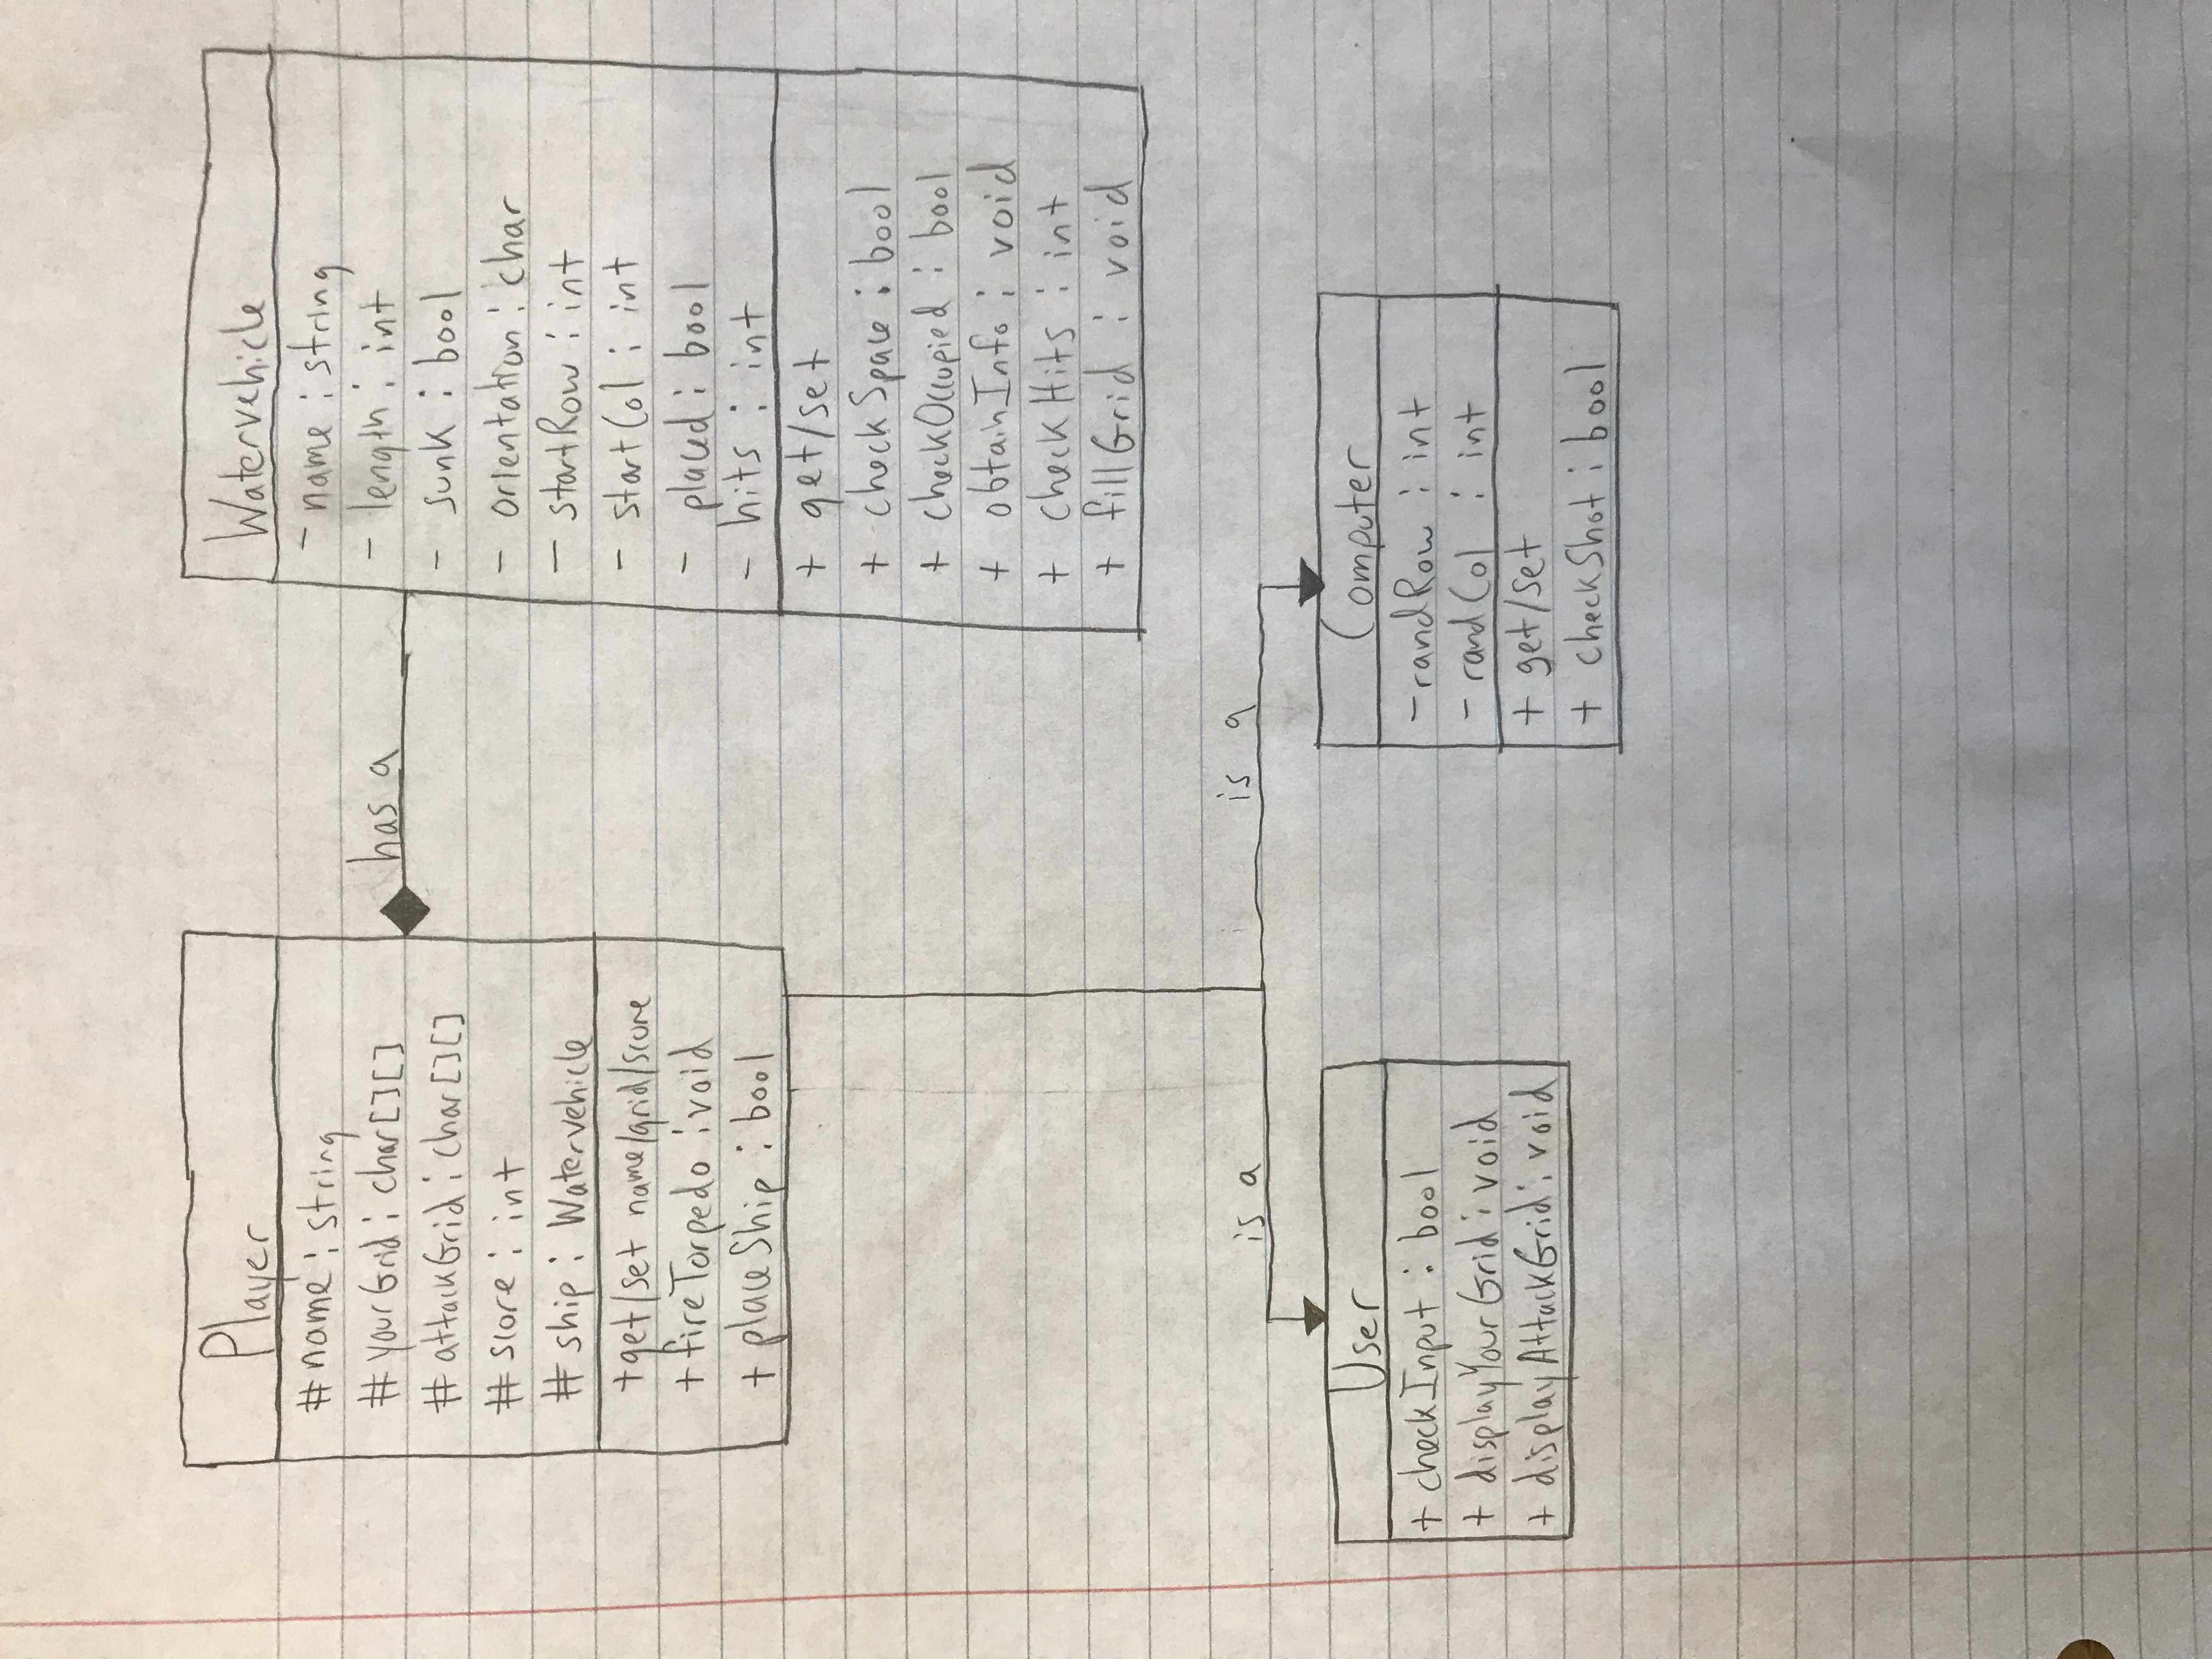 Player
# name : string
# yourGrid : char[][]
# attackGrid : char[][]
# score : int
# ship : Watervehicle
+ get/set name/grid/score
+ fireTorpedo : void
+ placeShip : bool
has a
Watervehicle
- name : string
- length : int
- sunk : bool
- orientation : char
- startRow : int
- startCol : int
- placed : bool
- hits : int
+ get/set
+ checkSpace : bool
+ checkOccupied : bool
+ obtainInfo : void
+ checkHits : int
+ fillGrid : void
is a
is a
User
+ checkInput : bool
+ displayYourGrid : void
+ displayAttackGrid : void
Computer
- randRow : int
- randCol : int
+ get/set
+ checkShot : bool